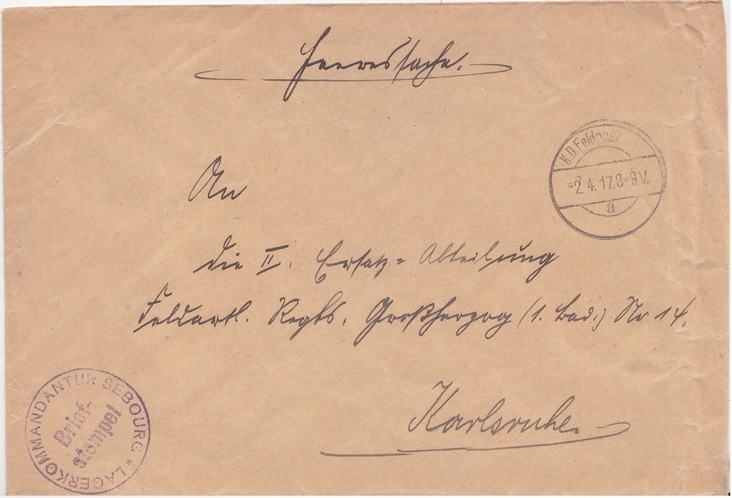 Heeressache.
K.D. Feldpost
-2.4.17.8-9V.
a
An
die II. Ersatz = Abteilung
Feldartl. Regts. Großherzog (1. Bad.) Nr 14.
Karlsruhe.
LAGERKOMMANDANTUR SEBOURG *
Brief-
stempel